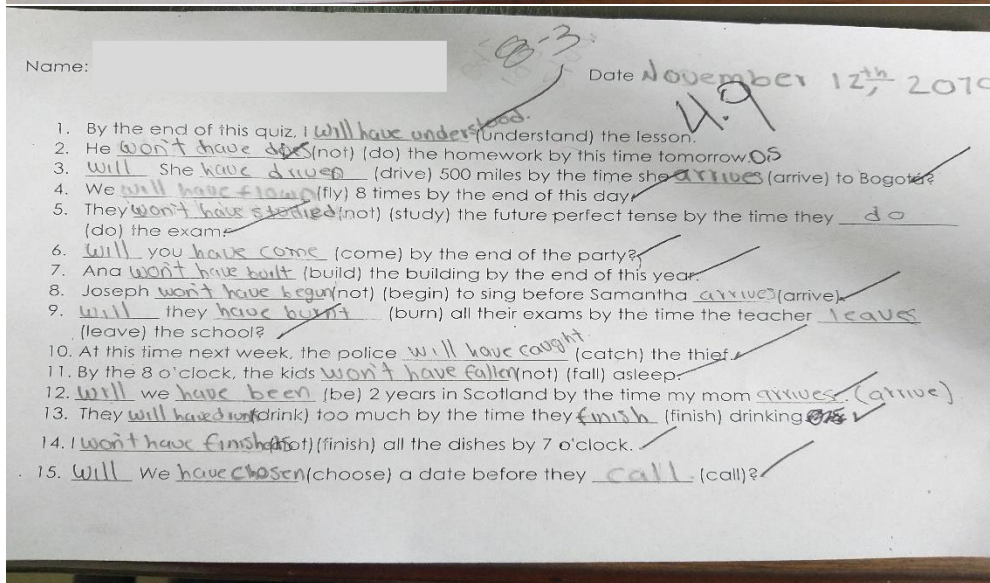 8-3
Name:
Date November 12th, 2019
4.9
1. By the end of this quiz, I will have understood. (understand) the lesson.
2. He won't have does (not) (do) the homework by this time tomorrow. 05
3. Will She have driven (drive) 500 miles by the time she arrives (arrive) to Bogotá?
4. We will have flown (fly) 8 times by the end of this day.
5. They won't have studied (not) (study) the future perfect tense by the time they do
(do) the exam.
6. Will you have come (come) by the end of the party?
7. Ana won't have built (build) the building by the end of this year.
8. Joseph won't have begun (not) (begin) to sing before Samantha arrives (arrive).
9. Will they have burnt (burn) all their exams by the time the teacher leaves
(leave) the school?
10. At this time next week, the police will have caught (catch) the thief.
11. By the 8 o'clock, the kids won't have fallen (not) (fall) asleep.
12. Will we have been (be) 2 years in Scotland by the time my mom arrives. (arrive)
13. They will have drunk (drink) too much by the time they finish (finish) drinking
14. I won't have finished (not) (finish) all the dishes by 7 o'clock.
15. Will We have chosen (choose) a date before they call. (call)?